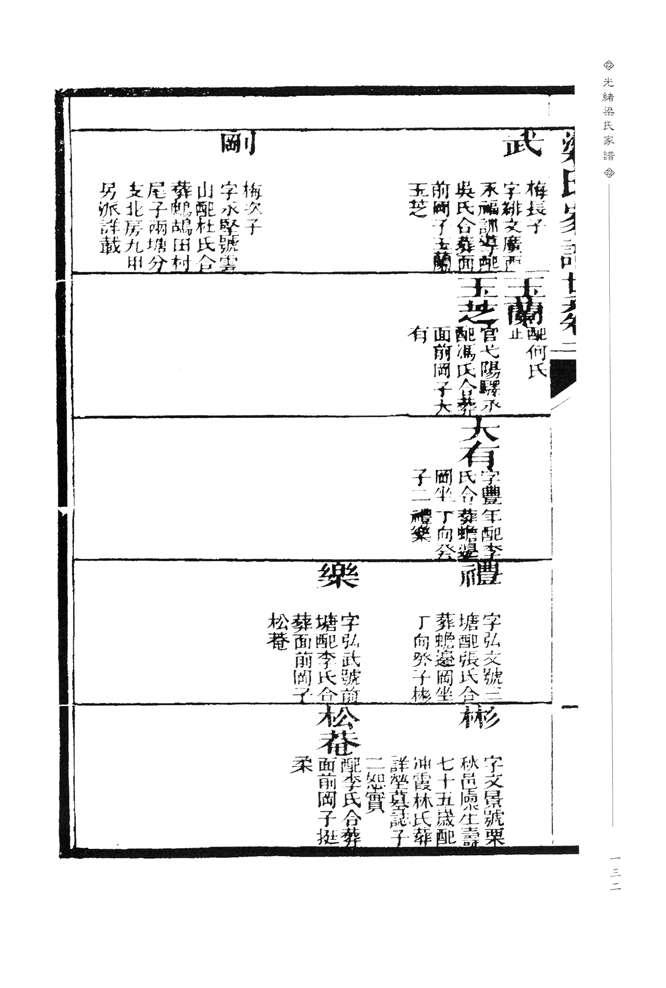 光緒梁氏家譜
梁氏家譜世系卷二
武
梅長子
字緋文廣西
永福訓導配
吳氏合葬面
前岡子玉蘭
玉芝
剛
梅次子
字永堅號雲
山配杜氏合
葬鷓鴣田村
尾子兩塘分
支北房九甲
另派詳載
玉蘭
配何氏
止
玉芝
官弋陽驛丞
配馮氏合葬
面前岡子大
有
大有
字豐年配李
氏合葬蟾邊
岡坐丁向癸
子二禮樂
禮
字弘文號三
塘配張氏合
葬蟾邊岡坐
丁向癸子彬
樂
字弘武號前
塘配李氏合
葬面前岡子
松菴
彬
字文景號栗
秋邑廩生壽
七十五歲配
冲霞林氏葬
詳塋墓誌子
二恕實
松菴
配李氏合葬
面前岡子挺
柔
一三二